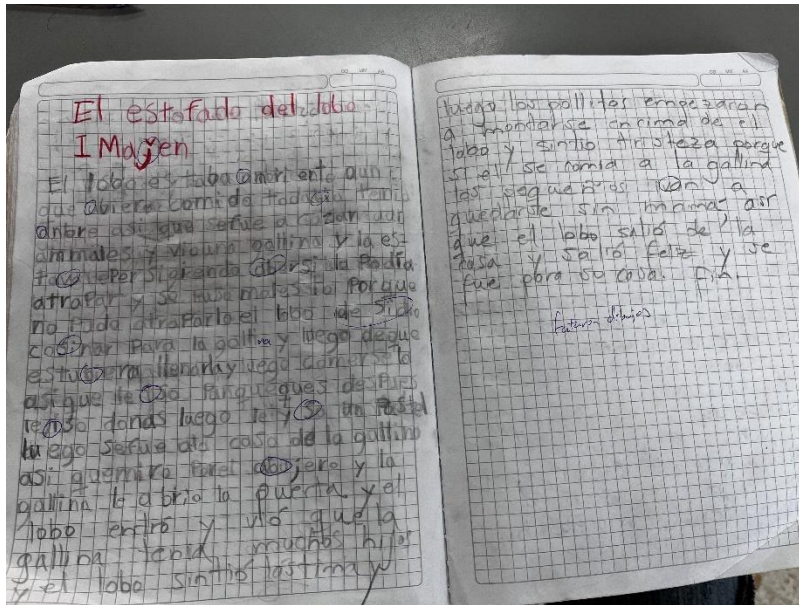 El estofado del lobo
IMajen
El lobo estaba ambriento aun
que ubiera comido todavia tenia
ambre asi que se fue a cazar mas
animales y vio una gallina y la es
taba persigienda aber si la Podia
atrapar y se puso molesto Porque
no Pudo atraparla el lobo desidio
cosinar Para la gallina y luego de que
estubiera llena luego comersela
asi que le iso Panqueques despues
le iso donas luego le yso un Pastel
luego se fue ala casa de la gallina
asi que miro por el abujero y la
gallina le abrio la puerta y el
lobo entro y vio que la
gallina tenia muchos hijos
y el lobo sintio lastima y
luego los pollitos empezaron
a montarse encima de el
lobo y sintio tristeza porque
si el se comia a la gallina
los pequeños ivan a
quedarse sin mamá asi
que el lobo salió de la
casa y salió feliz y se
fue para su casa. Fin
faltaron dibujos